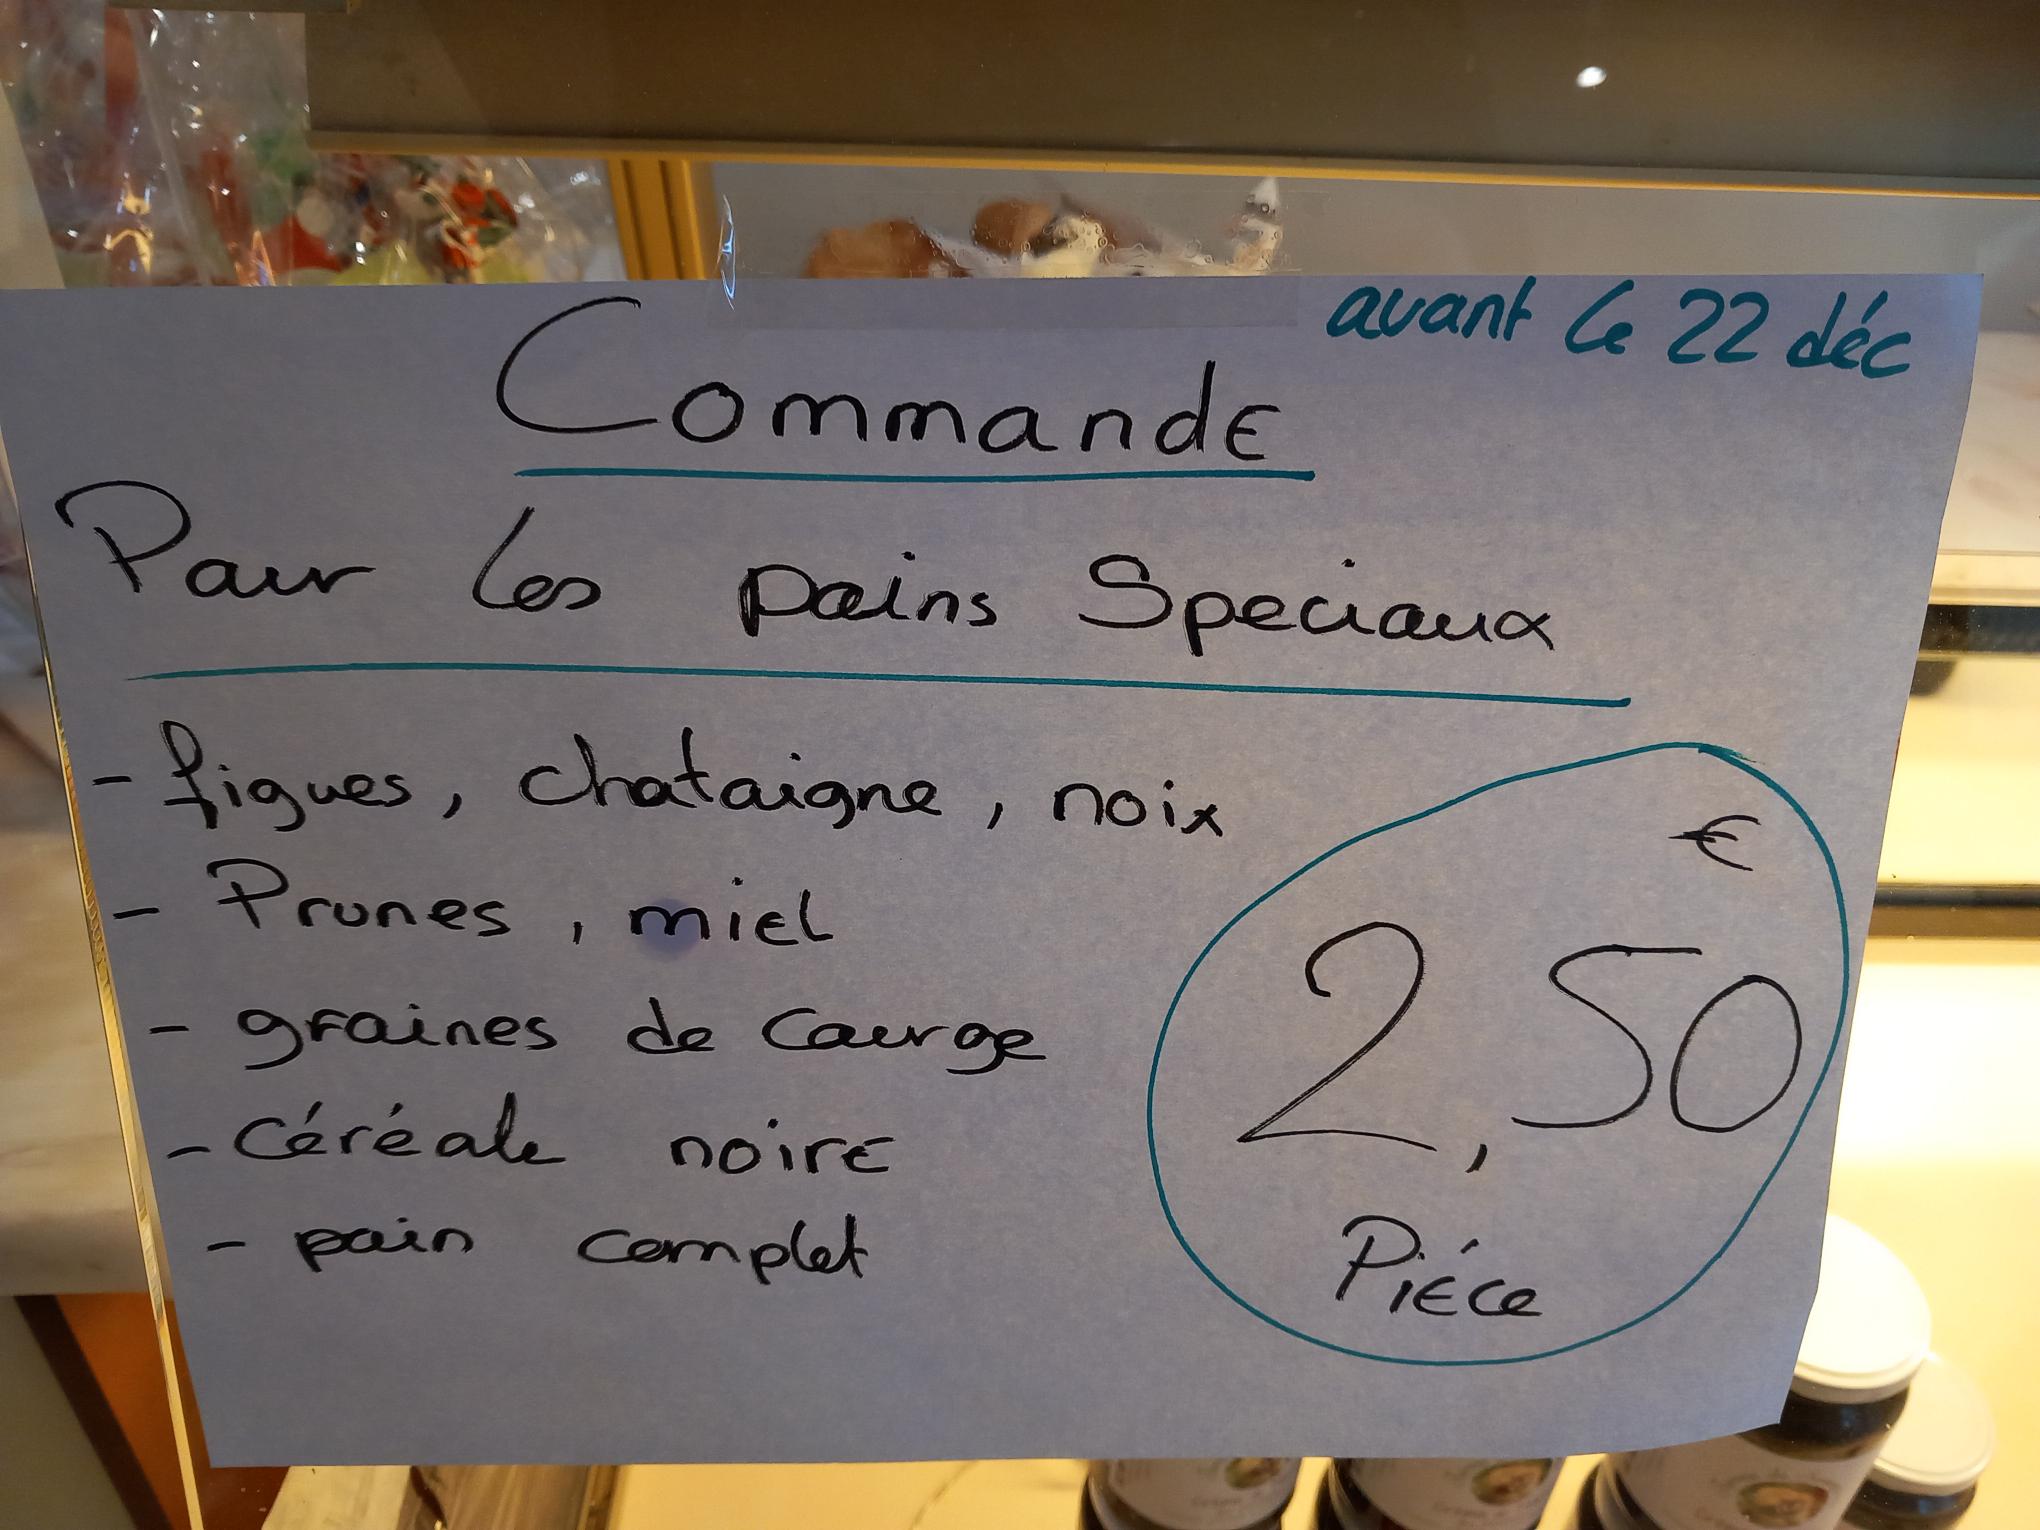 avant le 22 déc
Commande
Pour les pains Speciaux
- figues, chataigne, noix
- Prunes, miel
- graines de courge
- Céréale noire
- pain complet
€
2,50
Piéce